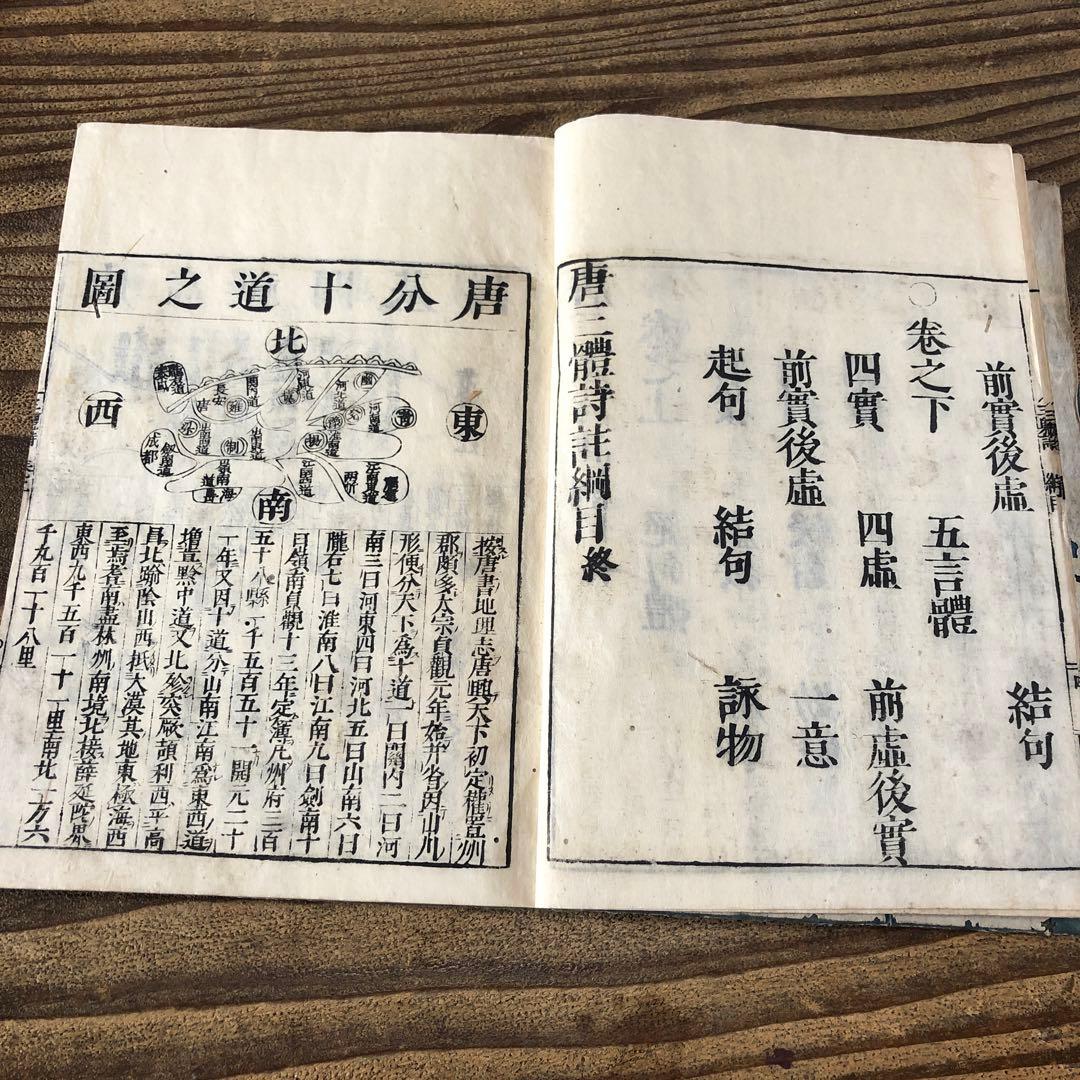 前實後虛 結句
○卷之下 五言體
四實 四虛 前虛後實
前實後虛 一意
起句 結句 詠物
唐三體詩註綱目終
唐分十道之圖
北
東
西
南
按唐書地理志唐興天下初定權置州
郡頗多太宗貞觀元年始并省因山川
形便分天下為十道一曰關內二曰河
南三曰河東四曰河北五曰山南六曰
隴右七曰淮南八曰江南九曰劍南十
曰領南貞觀十三年定簿凡州府三百
五十八縣一千五百五十一開元二十
一年又因十道分山南江南為東西道
增置黔中道又北殄突厥頡利西平高
昌北踰陰山西抵大漠其地東極海西
至焉耆南盡林州南境北接薛延陀界
東西九千五百一十一里南北一万六
千九百一十八里